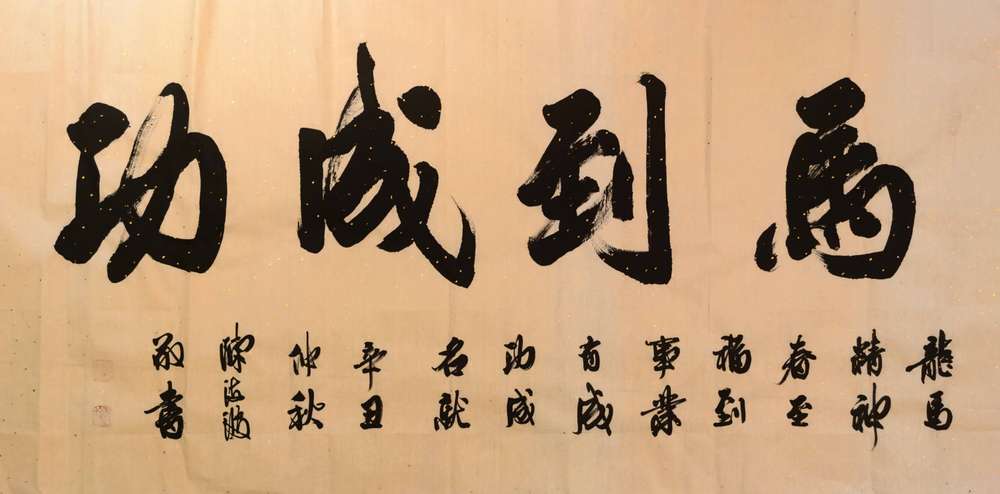 馬到成功
龍馬
精神
春至
福到
事業
有成
功成
名就
辛丑
仲秋
陳波
敬書